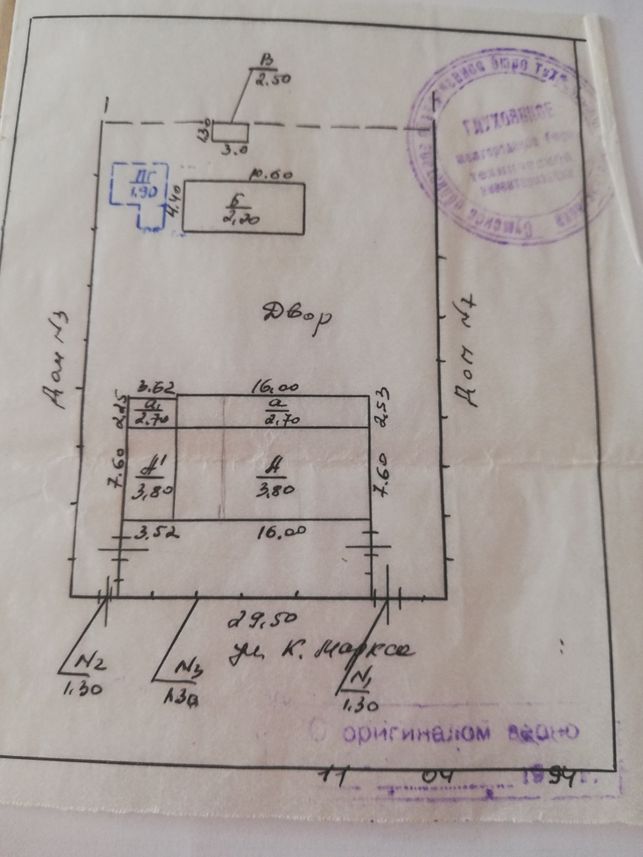 В
2.50
1.30
3.0
ПГ
1.90
10.60
4.40
Б
2,20
Двор
Дом N3
Дом N7
3.62
16.00
2.25
а₁
2.70
а
2,70
2,53
7.60
А'
3,80
А
3,80
7.60
3.52
16.00
29,50
ул. К. Маркса
N2
1.30
N3
1.30
N1
1.30
С оригиналом верно
11 04 1994 г.